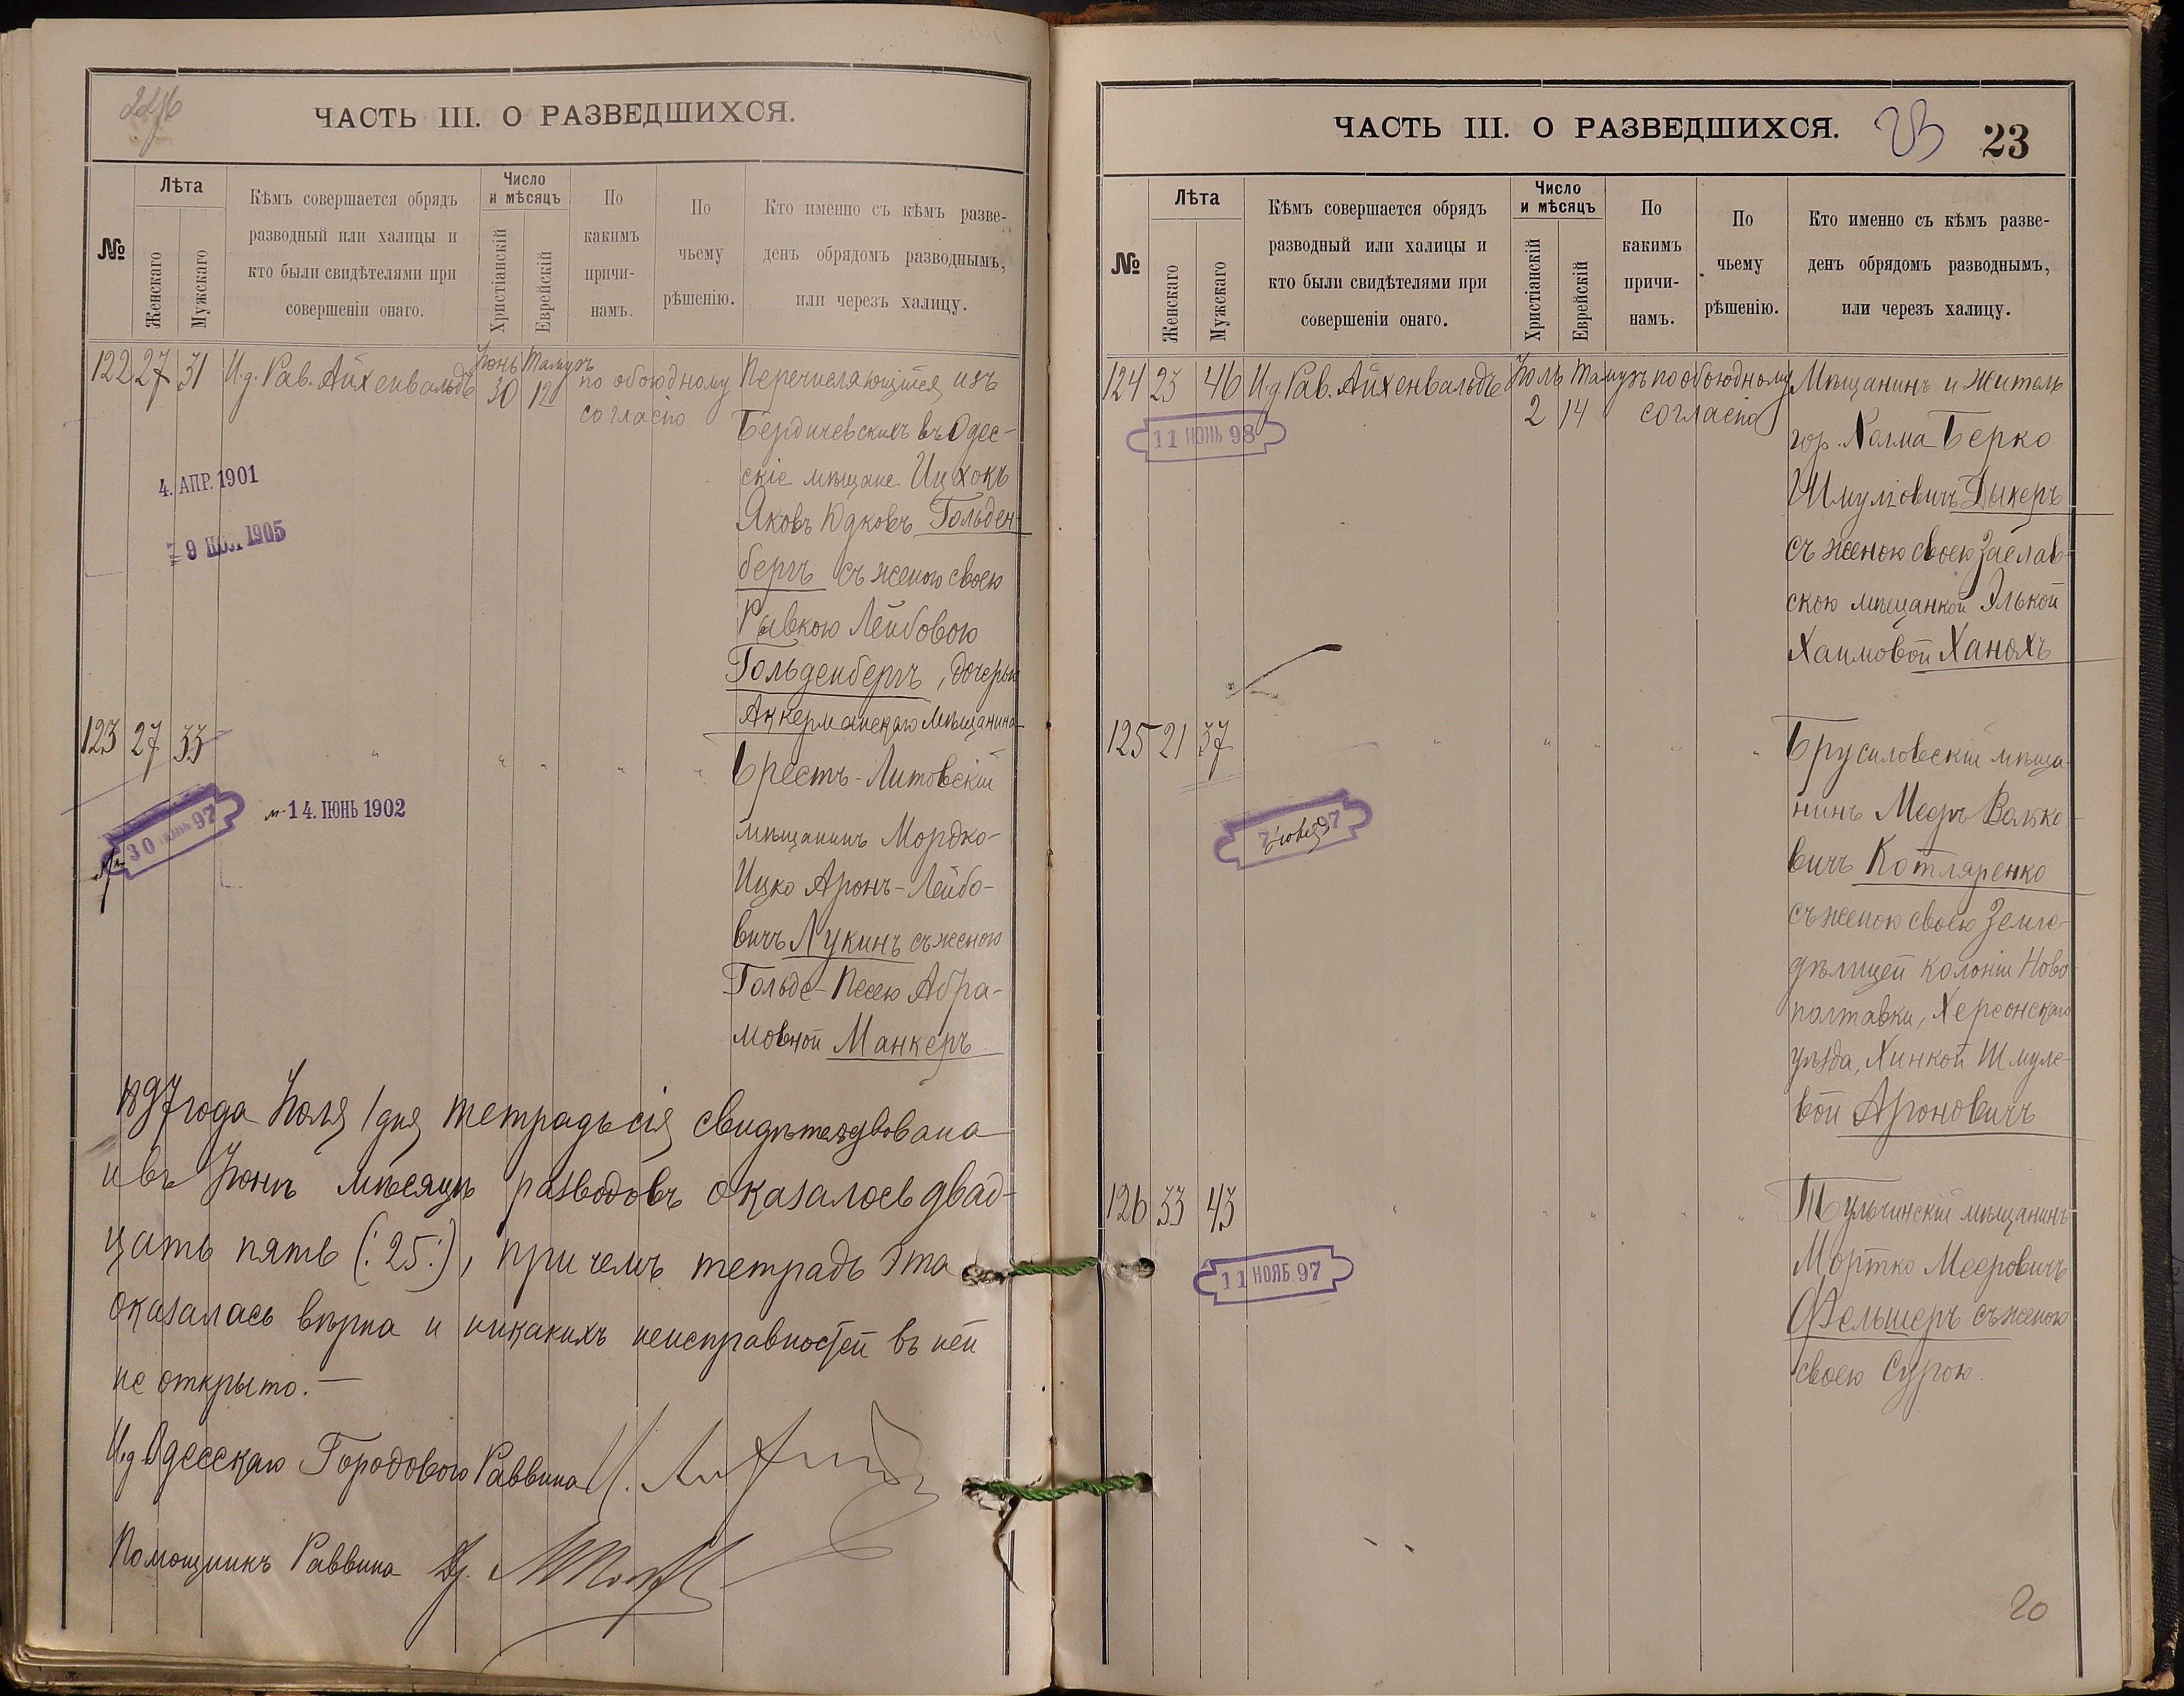 ЧАСТЬ III. О РАЗВЕДШИХСЯ.
№
Лѣта
Женскаго
Мужскаго
Кѣмъ совершается обрядъ
разводный или халицы и
кто были свидѣтелями при
совершеніи онаго.
Число
и мѣсяцъ
Христіанскій
Еврейскій
По
какимъ
причи-
намъ.
По
чьему
рѣшенію.
Кто именно съ кѣмъ разве-
денъ обрядомъ разводнымъ,
или черезъ халицу.
122 27 31 И.д. Рав. Айхенвальдъ
Іюнь 30
Тамузъ 12
по обоюдному
согласію
Перечисляющійся изъ
Бердичевскихъ въ Одес-
скіе мѣщане Ицхокъ
Яковъ Юдковъ Гольден-
бергъ съ женою своею
Рывкою Лейбовою
Гольденбергъ, дочерью
Аккерманскаго мѣщанина
4. АПР. 1901
9 НОЯ 1905
123 27 33 " " " " "
Брестъ-Литовскій
мѣщанинъ Мордко-
Ицко Аронъ-Лейбо-
вичъ Лукинъ съ женою
Гольде-Песею Абра-
мовной Манкеръ
30 ІЮНЬ 97
14. ІЮНЬ 1902
1897 года Іюля 1 дня тетрадь сія свидѣтельствована
и въ Іюнѣ мѣсяцѣ разводовъ оказалось двад-
цать пять (:25:), при чемъ тетрадь эта
оказалась вѣрна и никакихъ неисправностей въ ней
не открыто.—
И.д Одесскаго Городового Раввина
Помощникъ Раввина
ЧАСТЬ III. О РАЗВЕДШИХСЯ.
23 23
№
Лѣта
Женскаго
Мужскаго
Кѣмъ совершается обрядъ
разводный или халицы и
кто были свидѣтелями при
совершеніи онаго.
Число
и мѣсяцъ
Христіанскій
Еврейскій
По
какимъ
причи-
намъ.
По
чьему
рѣшенію.
Кто именно съ кѣмъ разве-
денъ обрядомъ разводнымъ,
или черезъ халицу.
124 23 46 И.д Рав. Айхенвальдъ
Іюль 2
Тамузъ 14
по обоюдному
согласію
Мѣщанинъ и житель
гор. Холма Берко
Шмуліовичъ Дыкеръ
съ женою своею Заслав-
скою мѣщанкой Элькой
Хаимовой Ханохъ
11 ІЮНЬ 98
125 21 37 " " " " "
Брусиловскій мѣща-
нинъ МееръВолько-
вичъ Котляренко
съ женою своею Земле-
дѣлицей колоніи Ново-
полтавки, Херсонскаго
уѣзда, Хинкой Шмуле-
вой Ароновичъ
97
126 33 43 " " " " "
Тульчинскій мѣщанинъ
Мортко Мееровичъ
Фельшеръ съ женою
своею Сурою.
11 НОЯБ. 97
20